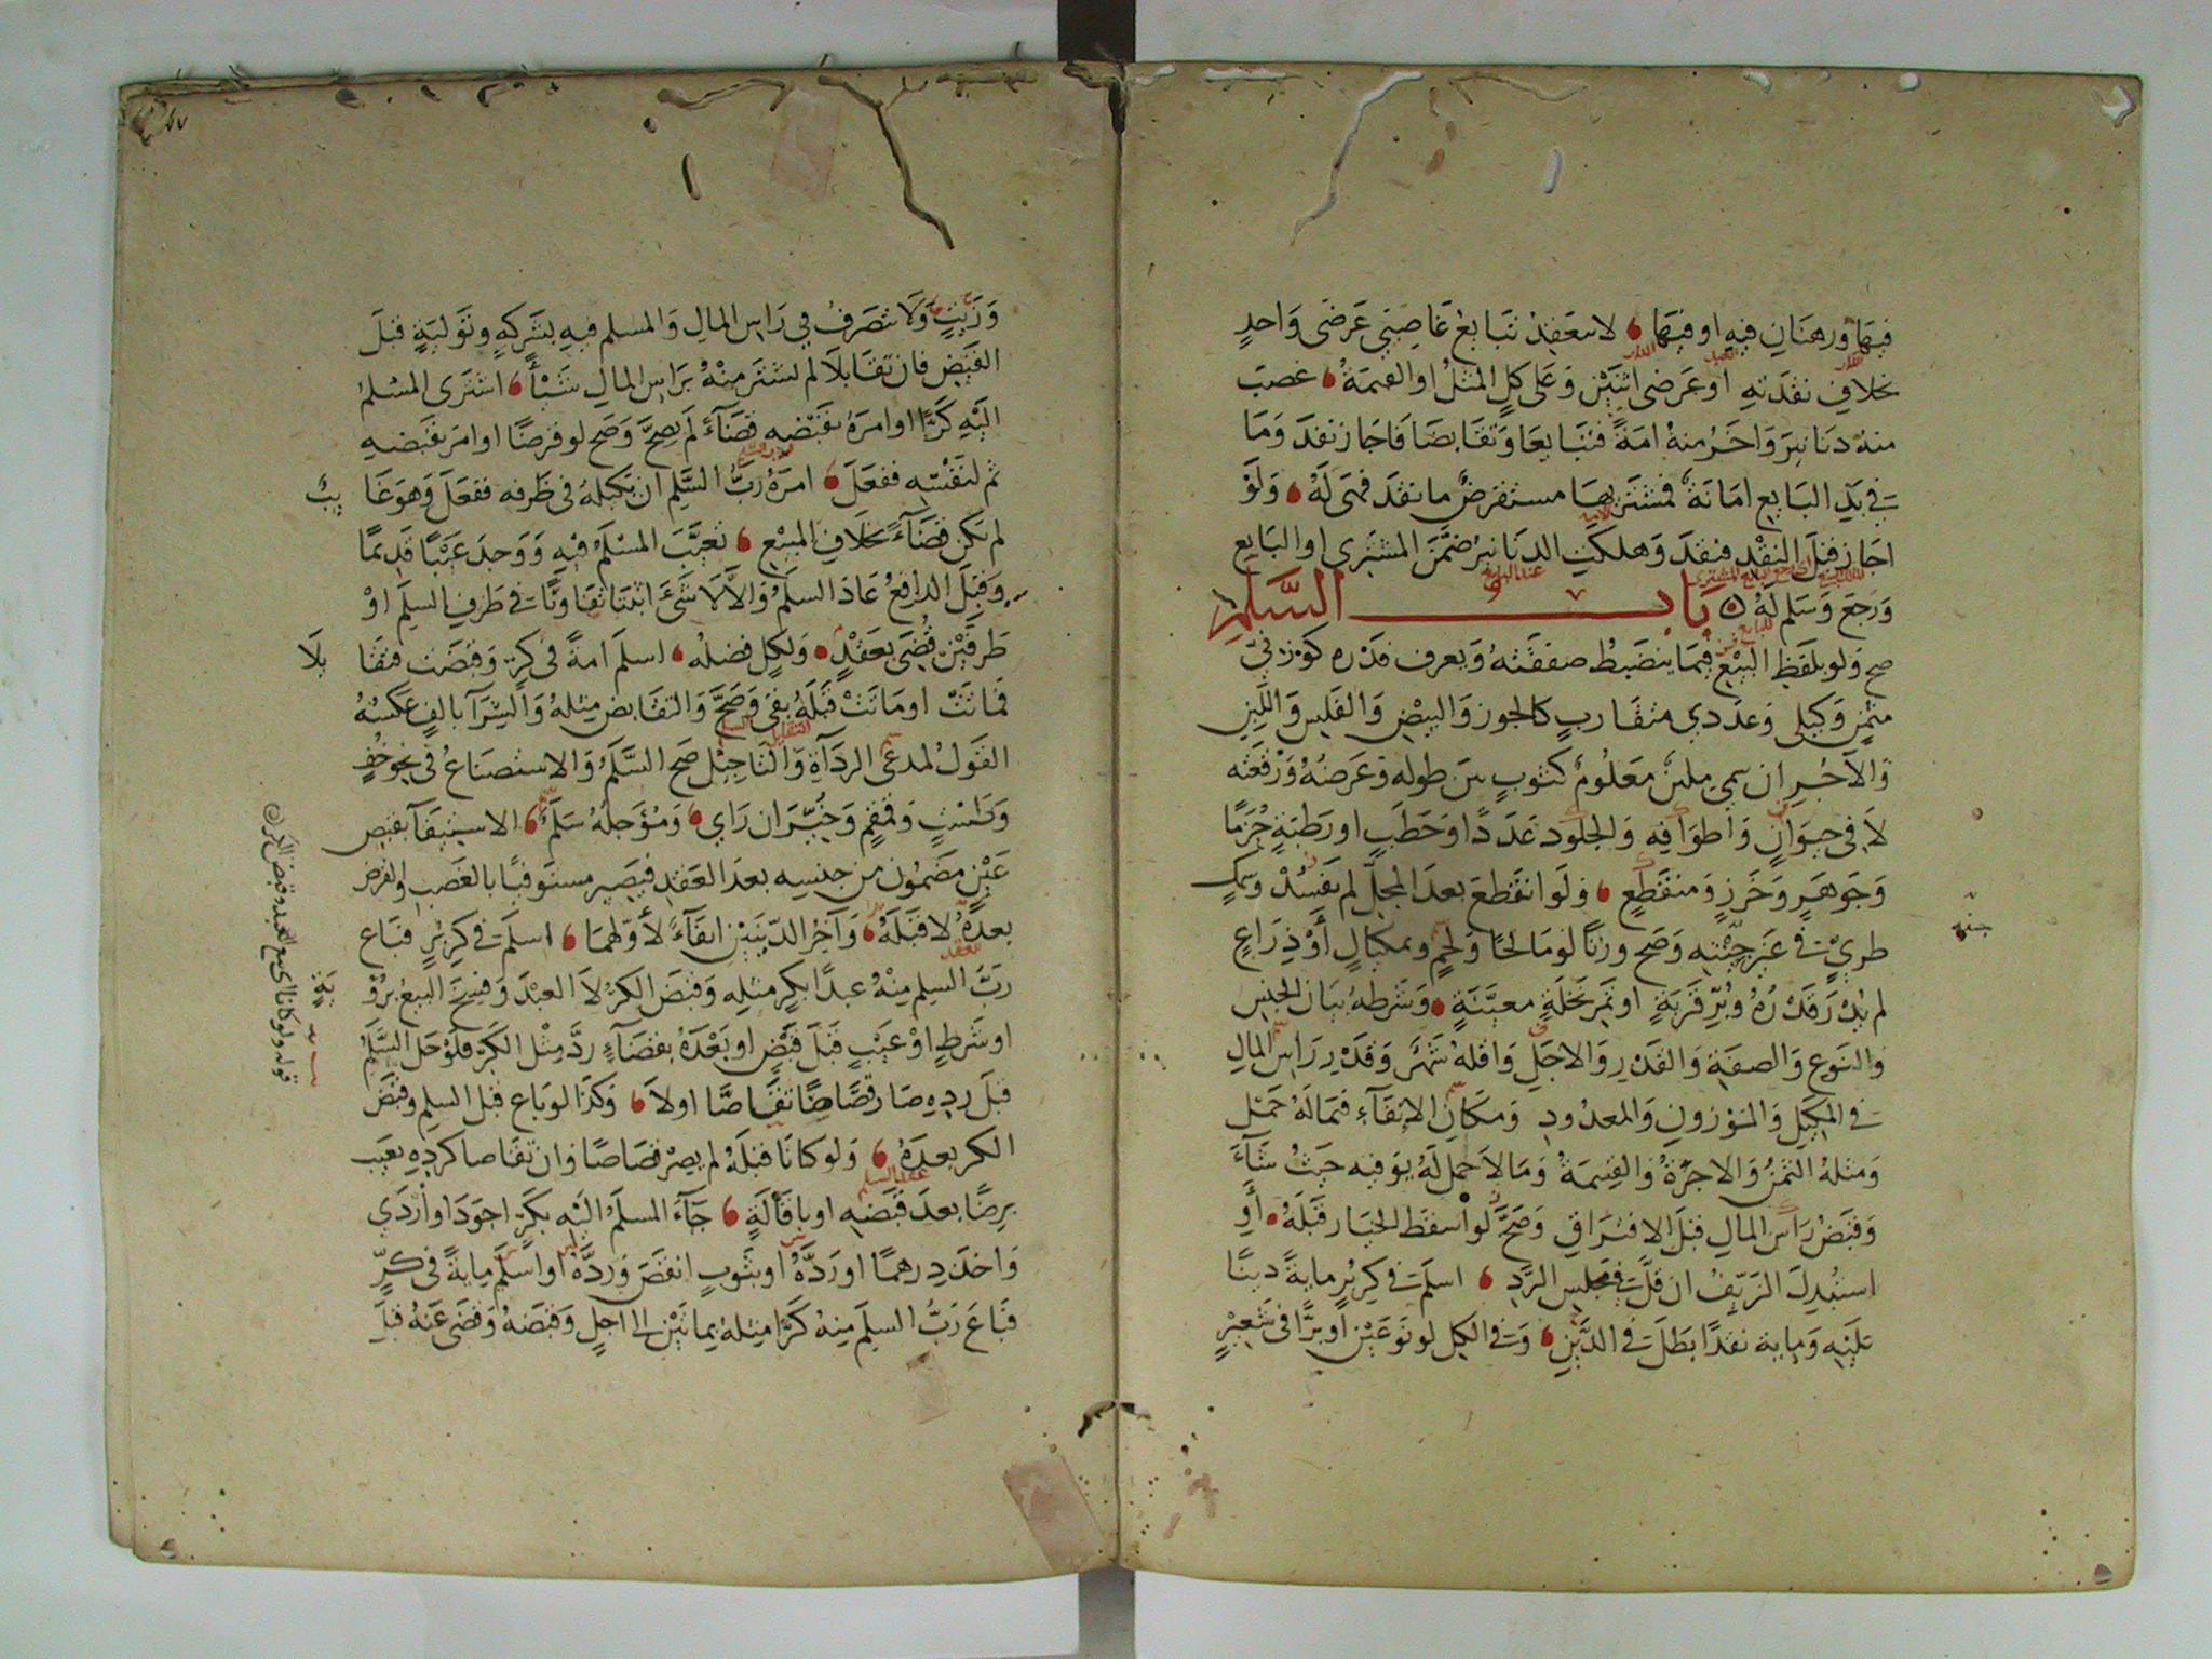 فيها ورهنان فيه او فيها لا ينعقد تبايع غاصبي عرضي واحد
بخلاف نقديه او عرضي اثنين وعلى كل المثل او القيمة غصب
منه دنانير واخر منه امة فتبايعا وتقابضا فاجاز نفد وما
في يد البايع امانة فمشتر بها مستقرض ما نقد فهي له ولو
اجاز قبل النقد فنقد وهلكت الدنانير ضمن المشتري او البايع
ورجع وسلم له باب السلم
صح ولو بلفظ البيع فيما ينضبط صفته ويعرف قدره كوزني
مثمن وكيلي وعددي متقارب كالجوز والبيض والفلس واللبن
والآجر ان سمي ملبن معلوم كثوب بين طوله وعرضه ورقعته
لا في حيوان واطرافه والجلود عددا وحطب او رطبة جرزا
وجوهر وخرز ومنقطع ولو انقطع بعد المحل لم يفسد وسمك
طري في غير حينه وصح وزنا لو مالحا ولحم ومكيال او ذراع
لم يدر قدره وبر قرية او تمر نخلة معينة وشرطه بيان الجنس
والنوع والصفة والقدر والاجل واقله شهر وقدر راس المال
في المكيل والموزون والمعدود ومكان الايفآء فيما له حمل
ومثله الثمن والاجرة والقسمة وما لا حمل له يوفيه حيث شآء
وقبض راس المال قبل الافتراق وصح لو اسقط الخيار قبله او
استبدل الزيف ان قلت في مجلس الرد اسلم في كر بر ماية دينا
عليه وماية نقدا بطل في الدين وفي الكل لو نوعين او برا في شعير
وزيت ولا تصرف في راس المال والمسلم فيه بشركة وتولية قبل
القبض فان تقايلا لم يشتر منه براس المال شيئا اشترى المسلم
اليه كرا او امره بقبضه قضآء لم يصح وصح لو قرضا او امر بقبضه
ثم لنفسه ففعل امره رب السلم ان يكيله في ظرفه ففعل وهو غايب
لم يكن قضآء بخلاف المبيع تعيب المسلم فيه ووجد عيبا قديما
وقبل الدافع عاد السلم والا لا شئ اثبتا تفاوتا في طرف السلم او
طرفين قضي بعقد ولكل فضله اسلم امة في كر وقبضت فتقايلا
فماتت او ماتت قبله بقي وصح والتقابض مثله والشرآ بالف عكسه
القول لمدعي الردآة والتاجيل صح السلم والاستصناع في نحو خف
وطست وقمقم وخير ان راي ومؤجله سلم الاستيفآ بقبض
عين مضمون من جنسه بعد العقد فيصير مستوفيا بالغصب والقرض
بعده لا قبله وآخر الدينين ايفآء لاولهما اسلم في كر بر فباع
رب السلم منه عبدا بكر مثله وقبض الكر لا العبد وفسخ البيع برؤية
او شرط او عيب قبل قبض او بعده بقضآء رد مثل الكر فلو حل السلم
قبل رده صار قصاصا تقاصا او لا وكذا لو باع قبل السلم وقبض
الكر بعده ولو كانا قبله لم يصر قصاصا وان تقاصا كرده بعيب
برضا بعد قبضه او باقالة جآء المسلم اليه بكر اجود او اردي
واخذ درهما او رده او بثوب انقص ورده او اسلم ماية في كر
فباع رب السلم منه كرا مثله بمائتين الى اجل وقبضه وقضى عنه قبل
قوله ولو كانا اي بيع العبد وقبض الكر